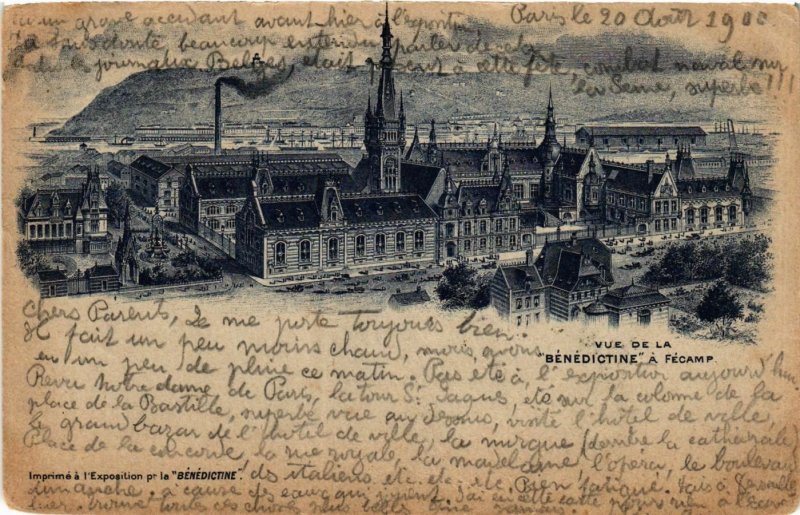 Paris le 20 Août 1900
un grave accident avant hier à l'exposition
beaucoup entendu parler de cela
journaux Belges, était présent à cette fête, combat naval sur
la Seine, superbe!!!
Chers Parents, Je me porte toujours bien.
Il fait un peu moins chaud, mais avons
eu un peu de pluie ce matin. Pas été à l'exposition aujourd'hui
Revu Notre dame de Paris, la tour St Jaques, été sur la colonne de la
place de la Bastille, superbe vue au dessus, visité l'hôtel de ville,
le grand bazar de l'hôtel de ville, la morgue (derrière la cathédrale)
Place de la concorde, la rue royale, la madelaine, l'opéra, le boulevard
ds italiens etc. etc. etc. Bien fatigué.
dimanche, à cause des eaux qui
hier. trouvé toutes ces choses plus belles que
VUE DE LA
"BÉNÉDICTINE" À FÉCAMP.
Imprimé à l'Exposition pr la "BÉNÉDICTINE".